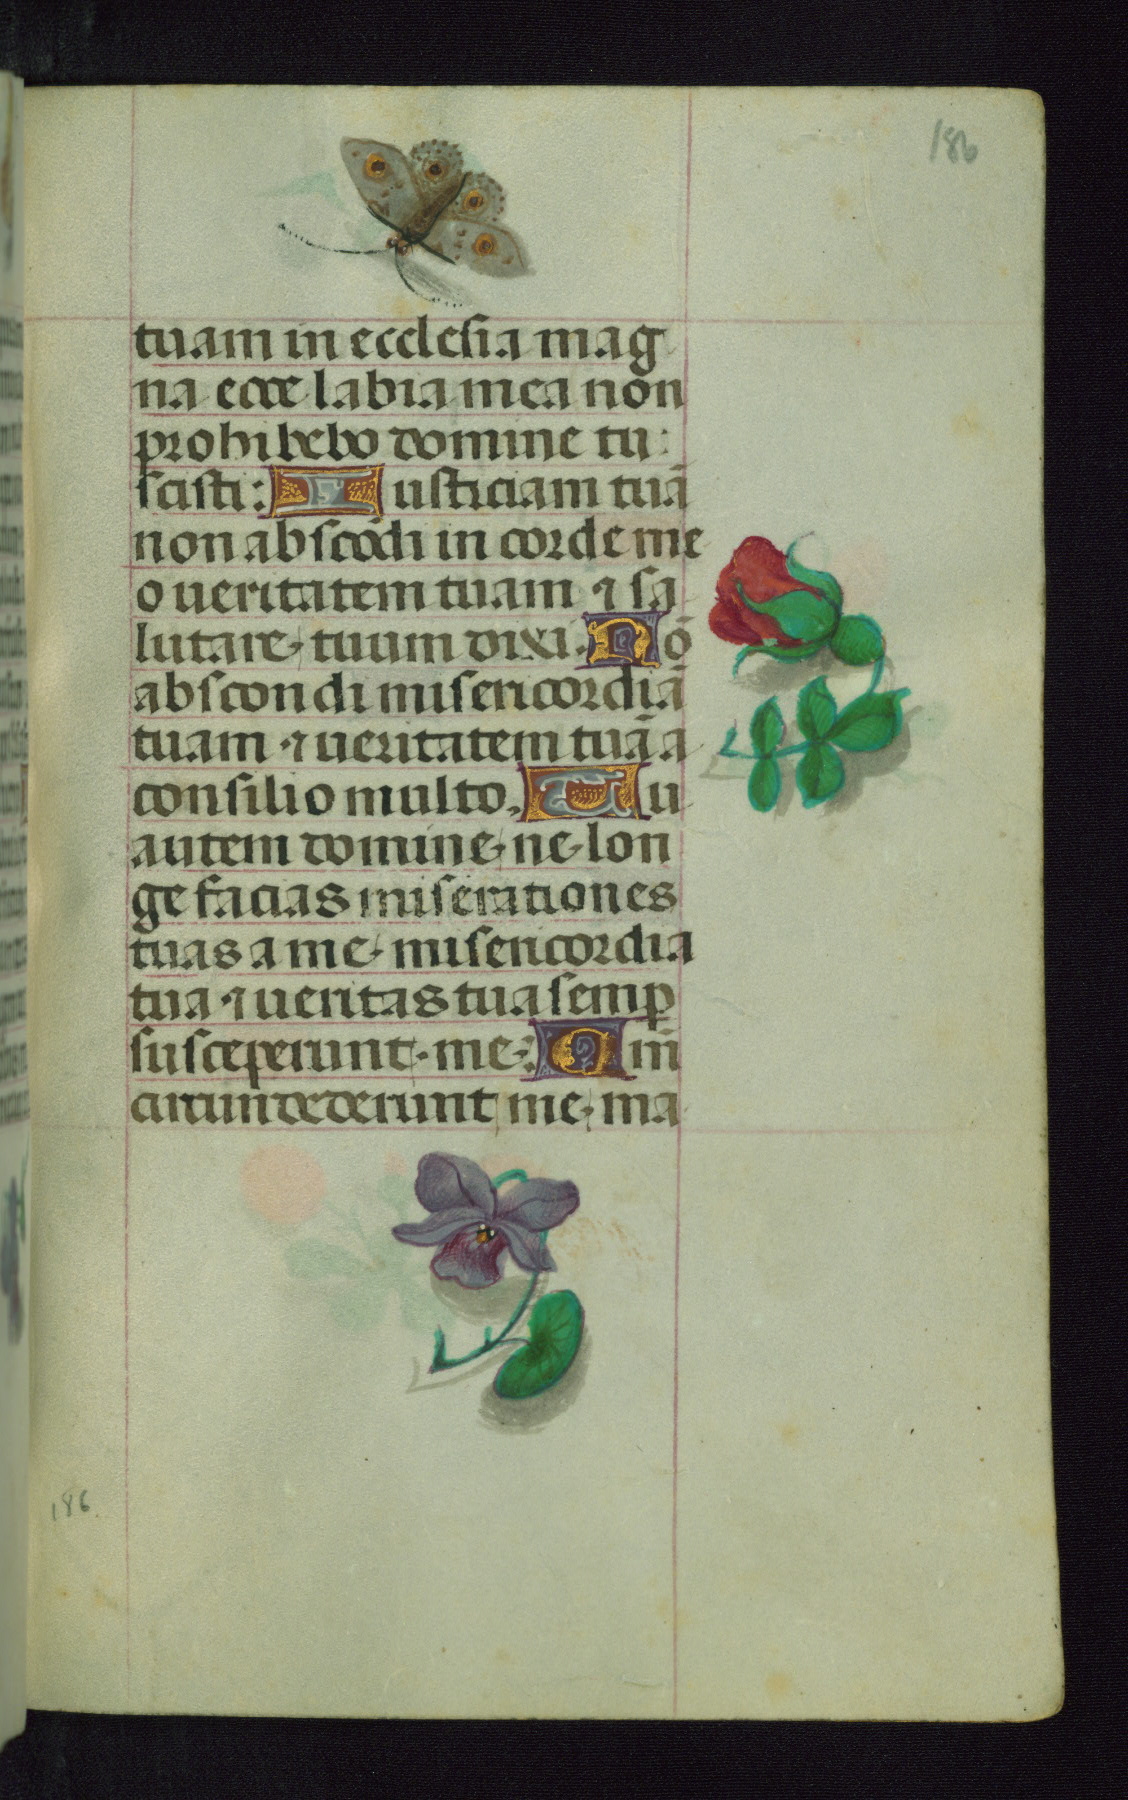 186
tuam in ecclesia mag
na ecce labia mea non
prohibebo domine tu:
scisti: Iusticiam tuā
non abscōdi in corde me
o ueritatem tuam ⁊ sa
lutare tuum dixi. Nō
abscondi misericordiā
tuam ⁊ ueritatem tuā a
consilio multo. Tu
autem domine ne lon
ge facias miserationes
tuas a me misericordia
tua ⁊ ueritas tua semꝑ
susceperunt me: Qm̄
circundederunt me ma
186